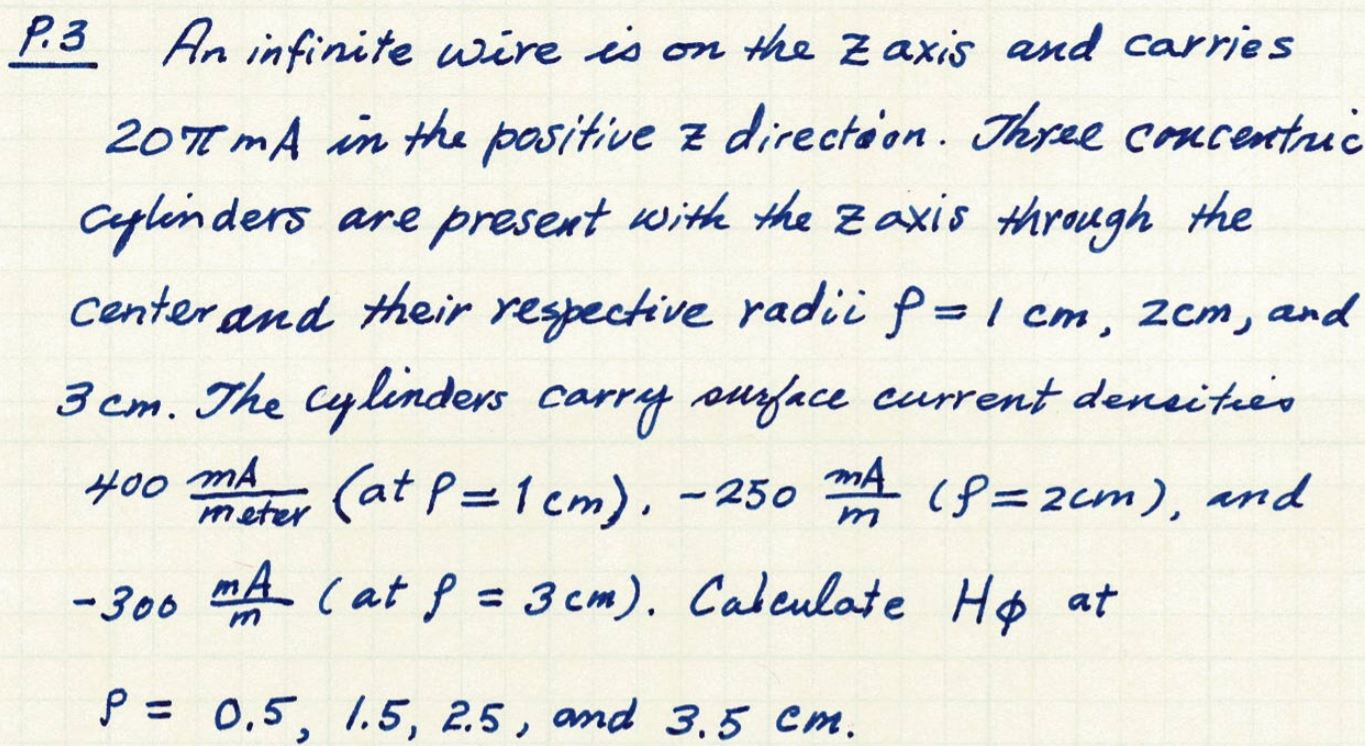 P.3 An infinite wire is on the z axis and carries
20π mA in the positive z direction. Three concentric
cylinders are present with the z axis through the
center and their respective radii ρ = 1 cm, 2cm, and
3 cm. The cylinders carry surface current densities
400 mA/meter (at ρ = 1 cm). -250 mA/m (ρ = 2cm), and
-300 mA/m (at ρ = 3 cm). Calculate Hϕ at
ρ = 0.5, 1.5, 2.5, and 3.5 cm.